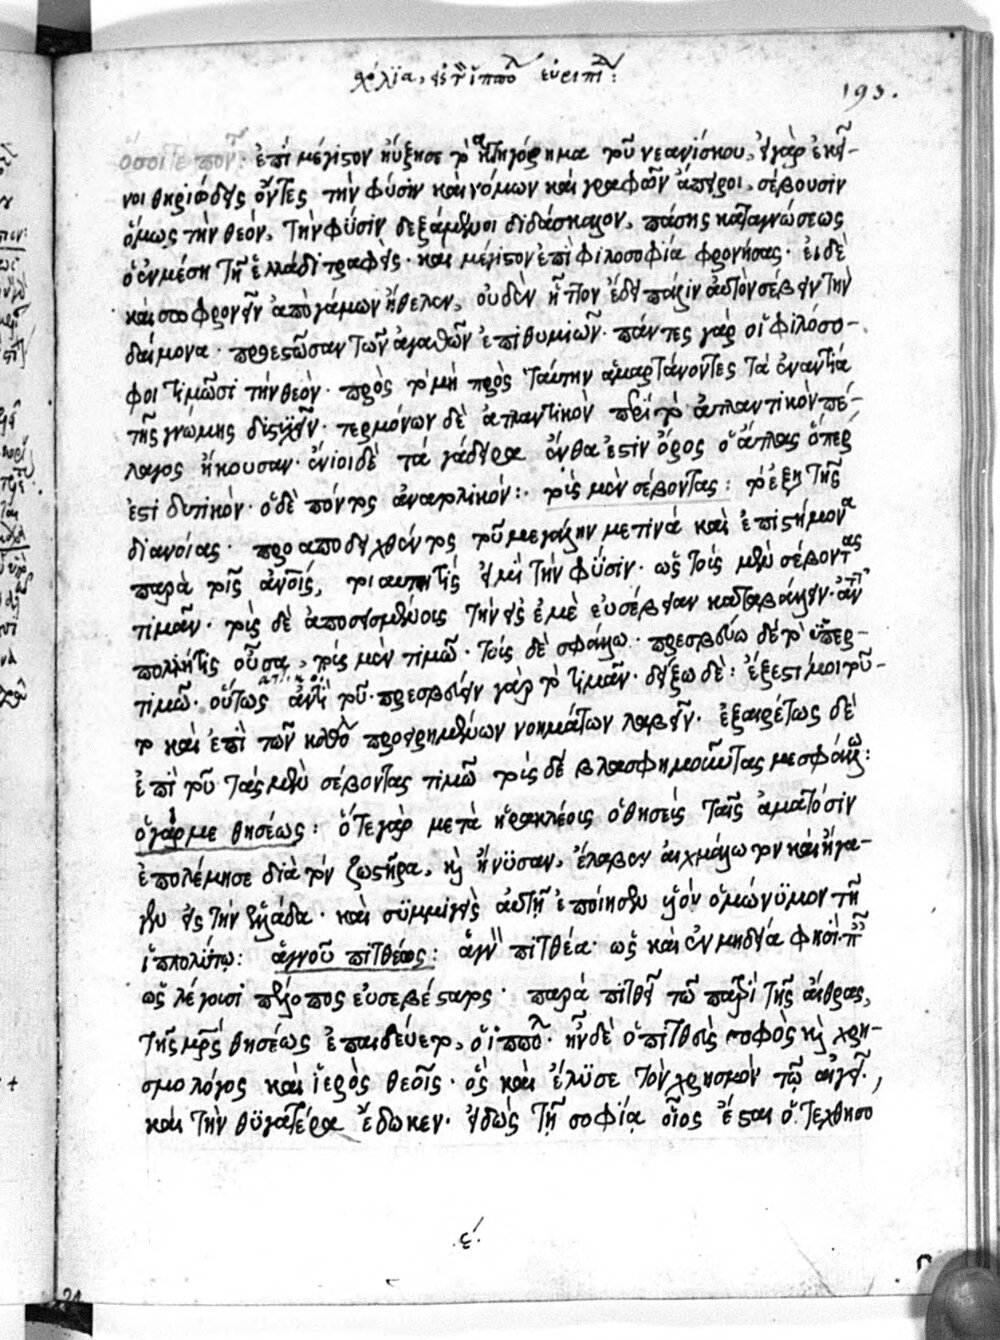 σχόλια, εἰς τ ἱππόλ εὐριπίδ:
193.
ὅσοι τε πον: ἐπὶ μέγιστον ηὔξησε τὸ κατηγόρημα τοῦ νεανίσκου, εἰ γὰρ ἐκεῖ-
νοι θηριώδεις ὄντες τὴν φύσιν καὶ νόμων καὶ γραφῶν ἄπειροι, σέβουσιν
ὅμως τὴν θεόν, τὴν φύσιν δεξάμενοι διδάσκαλον, πάσης καταγνώσεως
ὁ ἐν μέσῃ τῇ ἑλλάδι τραφεὶς· καὶ μέγιστον ἐπὶ φιλοσοφία φρονήσας· εἰ δὲ
καὶ σωφρονεῖν ἀπὸ γάμων ἤθελεν, οὐδὲν ἧττον ἔδει πάλιν αὐτὸν σέβειν τὴν
δαίμονα· προεστῶσαν τῶν ἀγαθῶν ἐπιθυμιῶν· πάντες γὰρ οἱ φιλόσο-
φοι τιμῶσι τὴν θεόν· πρὸς τὸ μὴ πρὸς ταύτην ἁμαρτάνοντες τὰ ἐναντία
τῆς γνώμης δυστυχεῖν· τερμόνων δὲ ἀτλαντικὸν περὶ τὸ ἀτλαντικὸν πέ-
λαγος ἤκουσαν· ἔνιοι δὲ τὰ γάδειρα ἔνθα ἐστὶν ὄρος ὁ ἄτλας ὅπερ
ἐστὶ δυτικόν· ὁ δὲ πόντος ἀνατολικόν: τοὺς μὲν σέβοντας: τὸ ἑξῆς τῆς
διανοίας· προαποδειχθέντος τοῦ μεγάλην με τινὰ καὶ ἐπίσημον
παρὰ τοῖς ἀνοις, τοιαύτη τίς εἰμὶ τὴν φύσιν· ὡς τοὺς μὲν σέβοντας
τιμᾶν· τοὺς δὲ ἀποσεισμένους τὴν εἰς ἐμὲ εὐσέβειαν καταβάλλειν·
πολλή τις οὖσα, τοὺς μὲν τιμῶ· τοὺς δὲ σφάλλω· πρεσβεύω δὲ τὸ ὑπερ-
τιμῶ· οὕτως ἀντὶ τοῦ· πρεσβεύειν γὰρ τὸ τιμᾶν· δείξω δὲ: ἔξεστί μοι τοῦ-
το καὶ ἐπὶ τῶν καθό προειρημένων νοημάτων λαβεῖν· ἐξαιρέτως δὲ
ἐπὶ τοῦ τὰς μὲν σέβοντας τιμῶ τοὺς δὲ βλασφημοῦντας με σφάλλω:
ὁ γάρ με θησέως: ὅτε γὰρ μετὰ ἡρακλέους ὁ θησεὺς ταῖς ἀμαζόσιν
ἐπολέμησε διὰ τὸν ζωστῆρα, κὴ ἤνυσαν, ἔλαβεν αἰχμάλωτον καὶ ἤγα-
γεν εἰς τὴν ἑλλάδα· καὶ συμμιγεὶς αὐτῇ ἐποίησεν υἱὸν ὁμώνυμον τῇ
ἱππολύτῃ: ἁγνοῦ πιτθέως: ἁγν πιτθέα· ὡς καὶ ἐν μηδεία φησί·
ὡς λέγουσι πέλοπος εὐσεβέστατος· παρὰ πιτθεῖ τῷ πατρὶ τῆς αἴθρας,
τῆς μρς θησέως ἐπαιδεύετο, ὁ ἱππόλ· ἦν δὲ ὁ πιτθεὺς σοφὸς κὴ χρη-
σμολόγος καὶ ἱερὸς θεοῖς· ὃς καὶ ἔλυσε τὸν χρησμὸν τῷ αἰγεῖ·,
καὶ τὴν θυγατέρα ἔδωκεν· εἰδὼς τῇ σοφίᾳ οἷος ἔσται ὁ τεχθησο